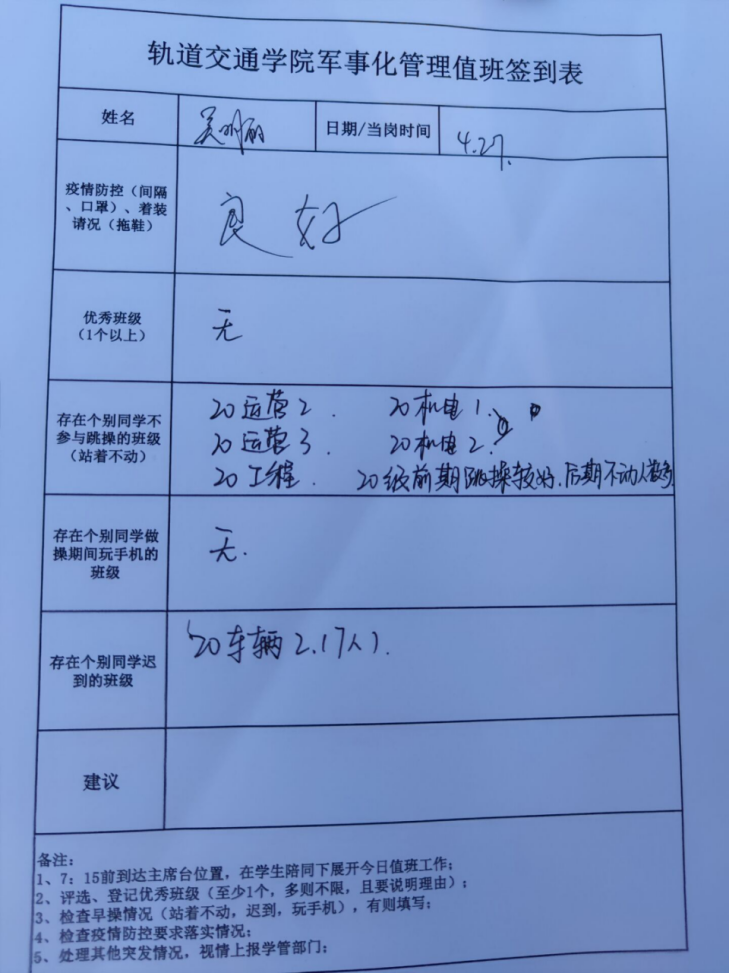 轨道交通学院军事化管理值班签到表
姓名
吴
丽
日期/当岗时间
4.27.
疫情防控（间隔
、口罩）、着装
请况（拖鞋）
良好
优秀班级
（1个以上）
无
存在个别同学不
参与跳操的班级
（站着不动）
20运营2. 20机电1.
20运营3. 20机电2.
20工程. 20级前期跳操较好.后期不动人数多
存在个别同学做
操期间玩手机的
班级
无.
存在个别同学迟
到的班级
20车辆2.(7人).
建议
备注：
1、7：15前到达主席台位置，在学生陪同下展开今日值班工作；
2、评选、登记优秀班级（至少1个，多则不限，且要说明理由）；
3、检查早操情况（站着不动，迟到，玩手机），有则填写；
4、检查疫情防控要求落实情况；
5、处理其他突发情况，视情上报学管部门；